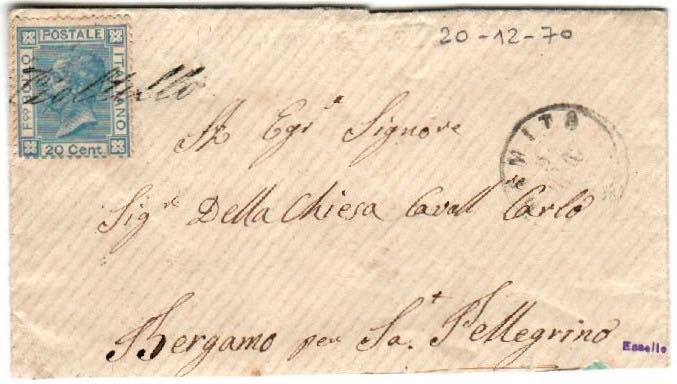 20-12-70
POSTALE
Fco BOLLO
ITALIANO
20 Cent.
Al Egr.º Signore
Sig.re Della Chiesa Cavall.re Carlo
Bergamo per Sa.t Pellegrino